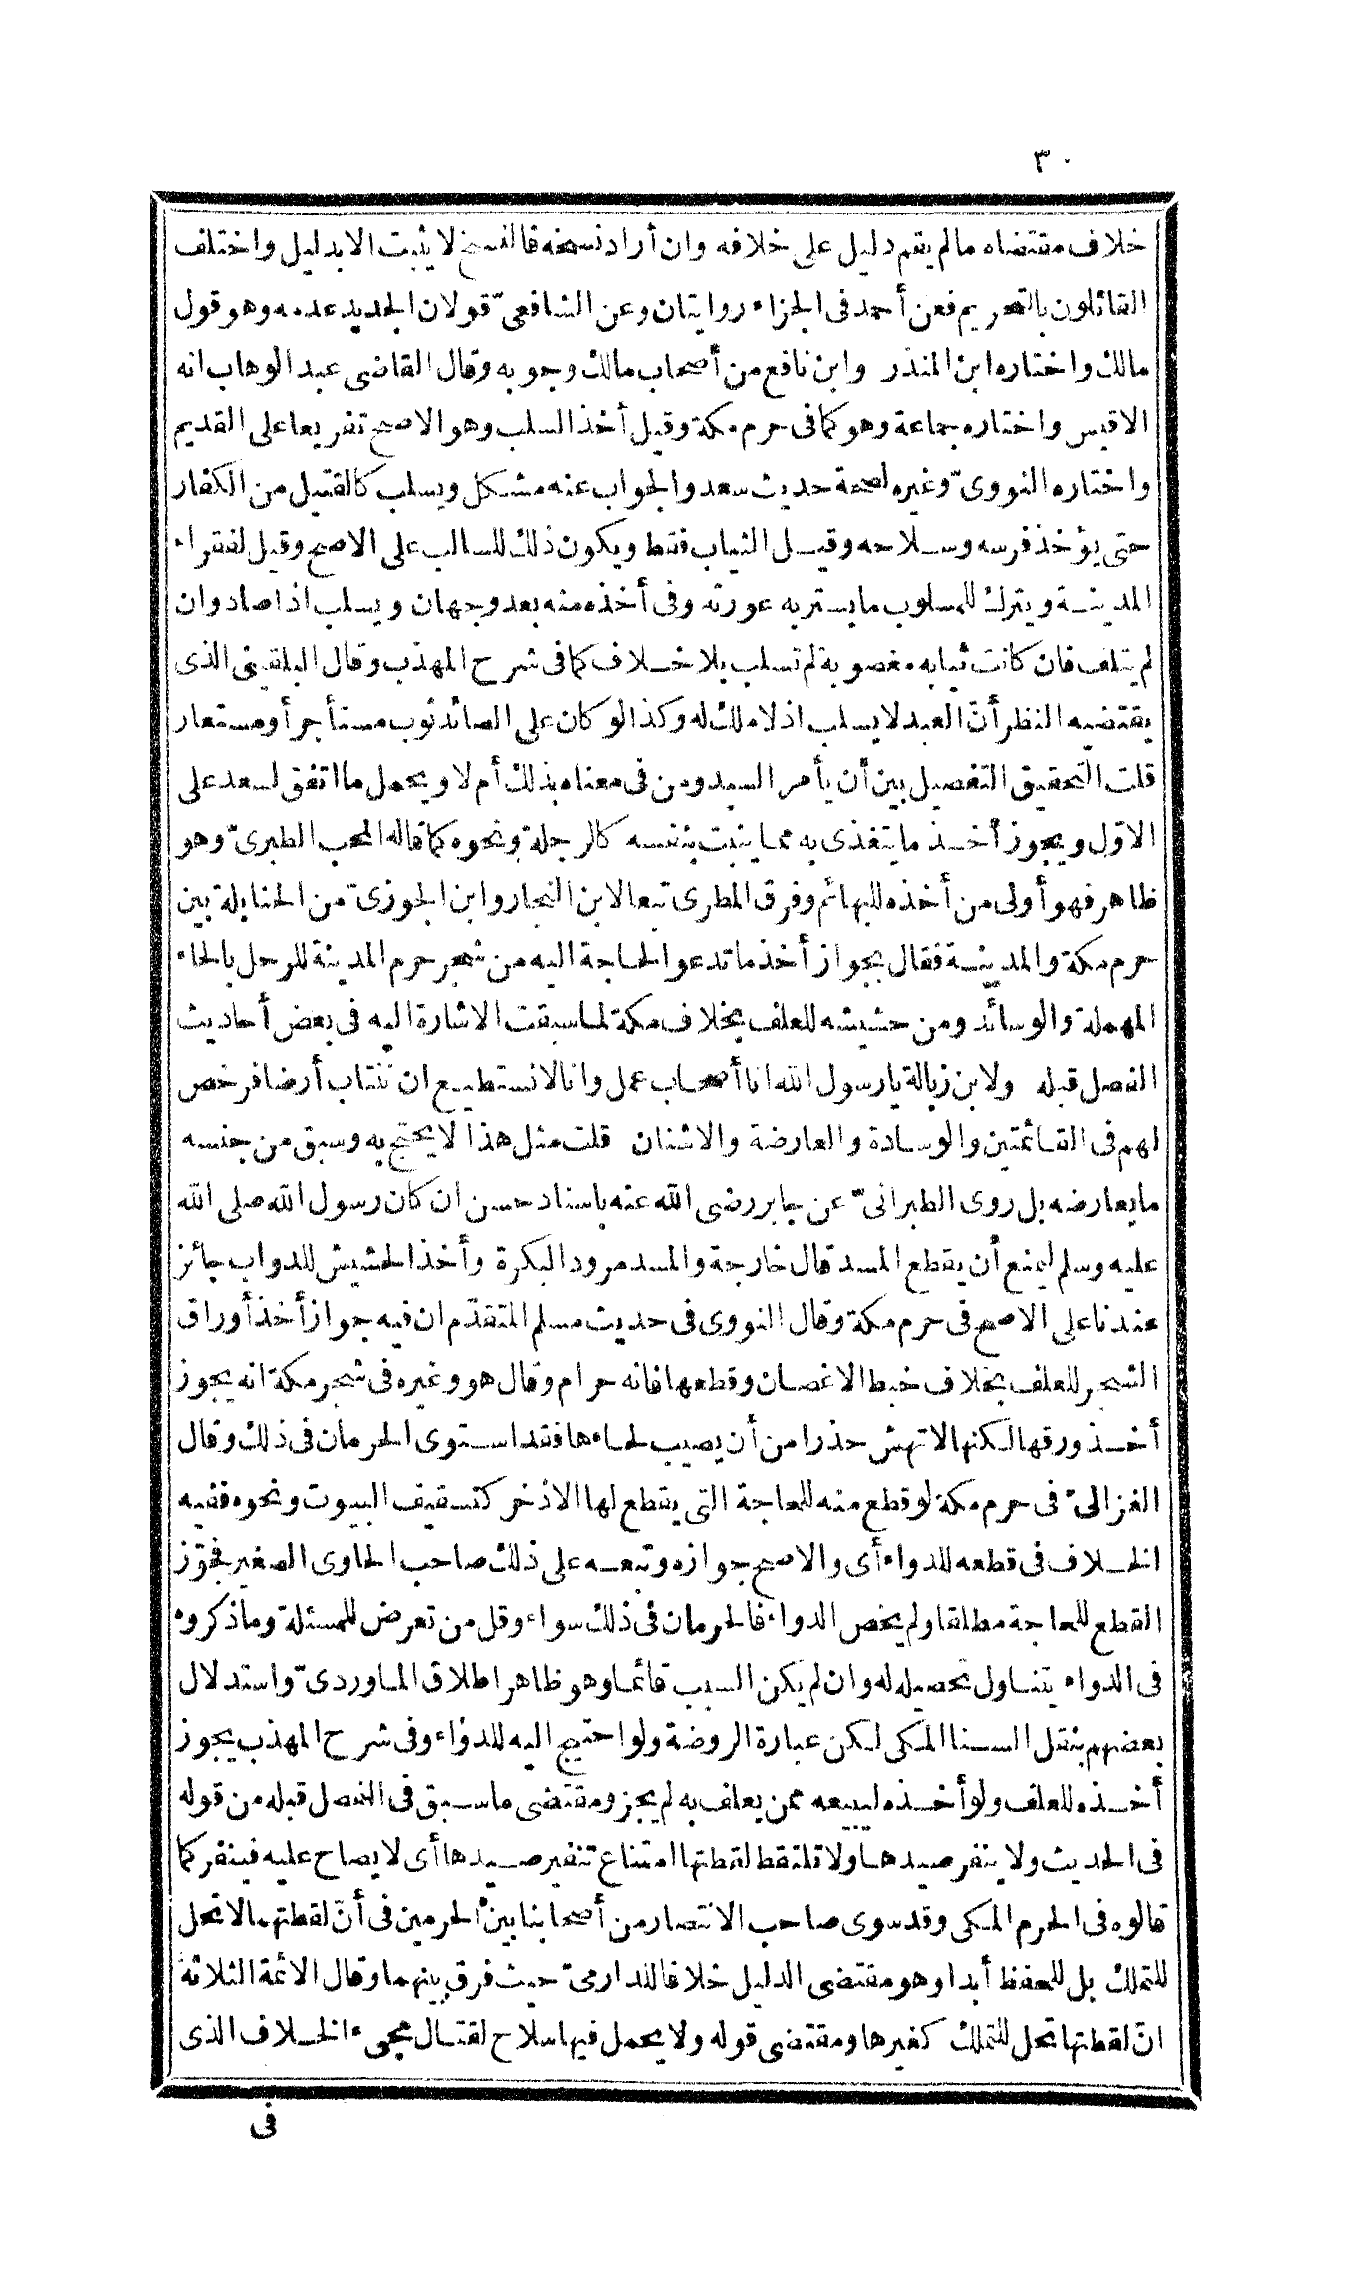 ٣٠
خلاف مقتضاه مالم يقم دليل على خلافه وان أراد نسخه فالنسخ لا يثبت الا بدليل واختلف
القائلون بالتحريم فعن أحمد فى الجزاء روايتان وعن الشافعىّ قولان الجديد عدمه وهو قول
مالك واختاره ابن المنذر وابن نافع من أصحاب مالك وجوبه وقال القاضى عبد الوهاب انه
الاقيس واختاره جماعة وهو كما فى حرم مكة وقيل أخذ السلب وهو الاصح تفريعا على القديم
واختاره النووىّ وغيره لصحة حديث سعد والجواب عنه مشكل ويسلب كالقتيل من الكفار
حتى يؤخذ فرسه وسلاحه وقيل الثياب فقط ويكون ذلك للسالب على الاصح وقيل لفقراء
المدينة ويترك للمسلوب ما يستر به عورته وفى أخذه منه بعد وجهان ويسلب اذا صاد وان
لم يتلف فان كانت ثيابه مغصوبة لم تسلب بلا خلاف كما فى شرح المهذب وقال البلقينى الذى
يقتضيه النظر أنّ العبد لا يسلب اذ لا ملك له وكذا لو كان على الصائد ثوب مستأجر أو مستعار
قلت التحقيق التفصيل بين أن يأمر السيد ومن فى معناه بذلك أم لا ويحمل ما اتفق لسعد على
الاوّل ويجوز أخذ ما يتغذى به مما ينبت بنفسه كالرجلة ونحوه كما قاله المحب الطبرىّ وهو
ظاهر فهو أولى من أخذه للبهائم وفرق المطرى تبعا لابن النجار وابن الجوزىّ من الحنابلة بين
حرم مكة والمدينة فقال بجواز أخذ ما تدعو الحاجة اليه من شجر حرم المدينة للرحل بالحاء
المهملة والوسائد ومن حشيشه للعلف بخلاف مكة لما سبقت الاشارة اليه فى بعض أحاديث
الفصل قبله ولابن زبالة يا رسول الله انا أصحاب عمل وانا لا نستطيع ان ننتاب أرضا فرخص
لهم فى القائمتين والوسادة والعارضة والاشنان قلت مثل هذا لا يحتج به وسبق من جنسه
ما يعارضه بل روى الطبرانىّ عن جابر رضى الله عنه باسناد حسن ان كان رسول الله صلى الله
عليه وسلم ليمنع أن يقطع المسد قال خارجة والمسد مرود البكرة وأخذ الحشيش للدواب جائز
عندنا على الاصح فى حرم مكة وقال النووى فى حديث مسلم المتقدّم ان فيه جواز أخذ أوراق
الشجر للعلف بخلاف خبط الاغصان وقطعها فانه حرام وقال هو وغيره فى شجر مكة انه يجوز
أخذ ورقها لكنها لا تهش حذرا من أن يصيب لحاءها فقد استوى الحرمان فى ذلك وقال
الغزالىّ فى حرم مكة لو قطع منه للحاجة التى يقطع لها الاذخر كتسقيف البيوت ونحوه ففيه
الخلاف فى قطعه للدواء أى والاصح جوازه وتبعه على ذلك صاحب الحاوى الصغير فجوّز
القطع للحاجة مطلقا ولم يخص الدواء فالحرمان فى ذلك سواء وقل من تعرض للمسئلة وما ذكروه
فى الدواء يتناول تحصيله له وان لم يكن السبب قائما وهو ظاهر اطلاق الماوردىّ واستدلال
بعضهم بنقل السنا المكى لكن عبارة الروضة ولو احتيج اليه للدواء وفى شرح المهذب يجوز
أخذه للعلف ولو أخذه ليبيعه ممن يعلف به لم يجز ومقتضى ما سبق فى الفصل قبله من قوله
فى الحديث ولا ينفر صيدها ولا تلتقط لقطتها امتناع تنفير صيدها أى لا يصاح عليه فينفر كما
قالوه فى الحرم المكى وقد سوى صاحب الانتصار من أصحابنا بين الحرمين فى أنّ لقطتهما لا تحل
للتملك بل للحفظ أبدا وهو مقتضى الدليل خلافا للدارمىّ حيث فرق بينهما وقال الائمة الثلاثة
انّ لقطتها تحل للتملك كغيرها ومقتضى قوله ولا يحمل فيها سلاح لقتال مجىء الخلاف الذى
فى